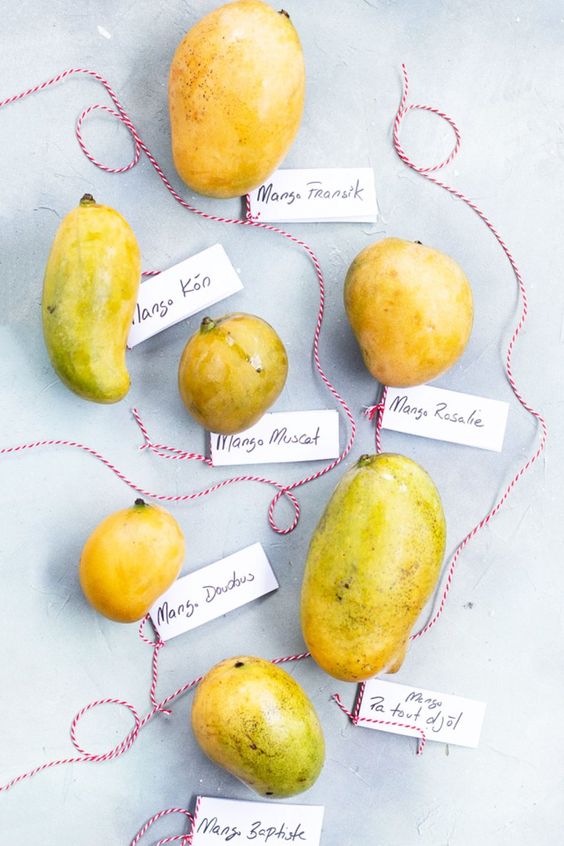 Mango Fransik
Mango Kón
Mango Muscat
Mango Rosalie
Mango Doudous
Mango
Pa tout djòl
Mango Baptiste